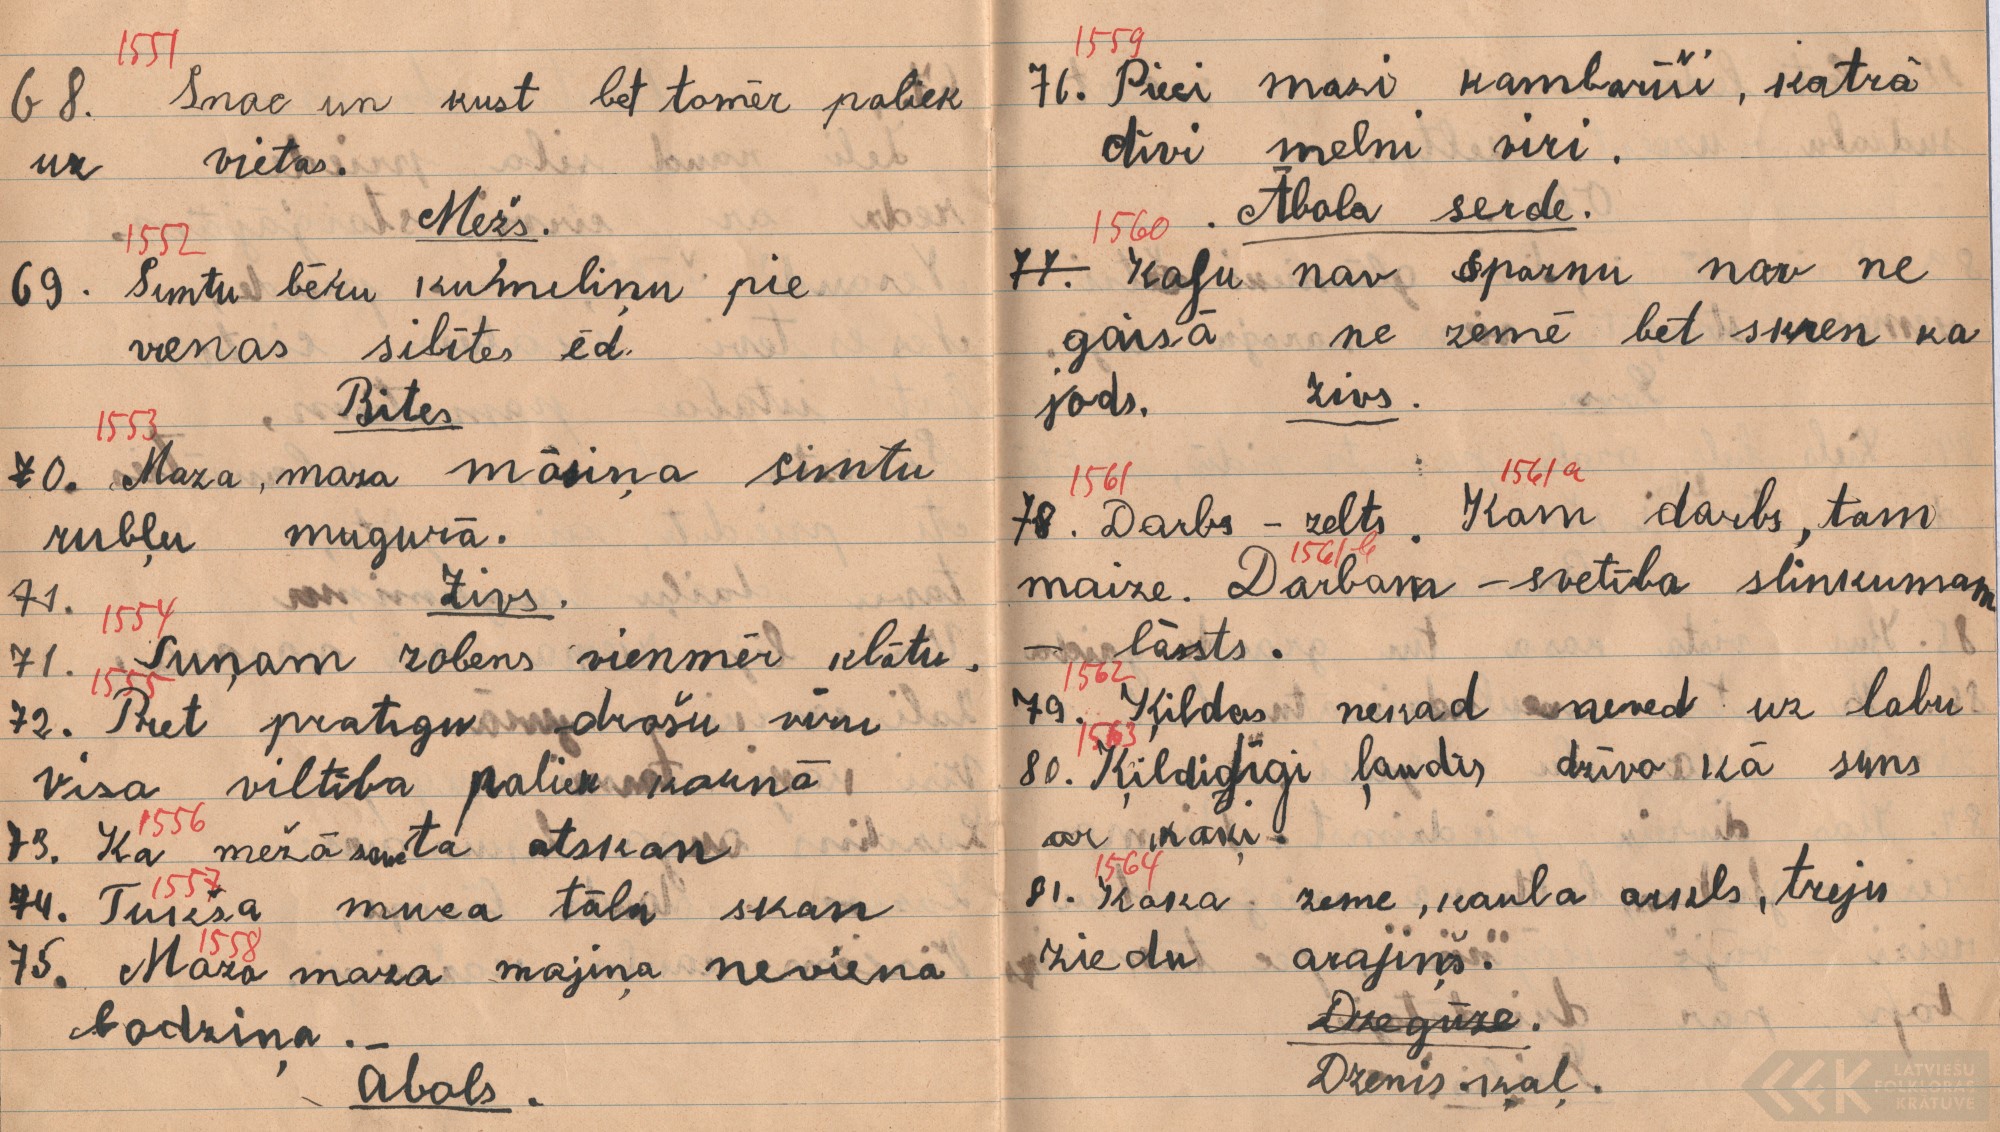 1551
68. Snac un kust bet tomēr paliek
uz vietas.
Mežs.
1552
69. Simtu bēru kumeliņu pie
vienas silītes ēd.
Bites
1553
70. Maza, maza māsiņa simtu
rubļu mugurā.
71. Zivs.
1554
71. Suņam zobens vienmēr klātu.
1555
72. Pret pratīgu drošu vīru
visa viltība paliek kaunā
1556
73. Ka mežā sauc tā atskan
1557
74. Tukša muca tālu skan
1558
75. Maza maza majiņa neviena
lodziņa.
Ābols.
1559
76. Pieci mazi kambarīši, katrā
divi melni vīri.
Ābola serde.
1560
77. Kaju nav sparnu nav ne
gaisā ne zemē bet skren ka
jods. Zivs.
1561 1561a
78. Darbs – zelts. Kam darbs, tam
1561-b
maize. Darbam – svetība slinkumam
– lāsts.
1562
79. Ķildas nekad neved uz labu
1563
80. Ķildigīgi ļaudis dzīvo kā suns
ar kaķi.
1564
81. Koka zeme, kaula arkls, treju
ziedu arajiņš.
Dzegūze.
Dzenis kaļ.
LATVIEŠU
FOLKLORAS
KRĀTUVE